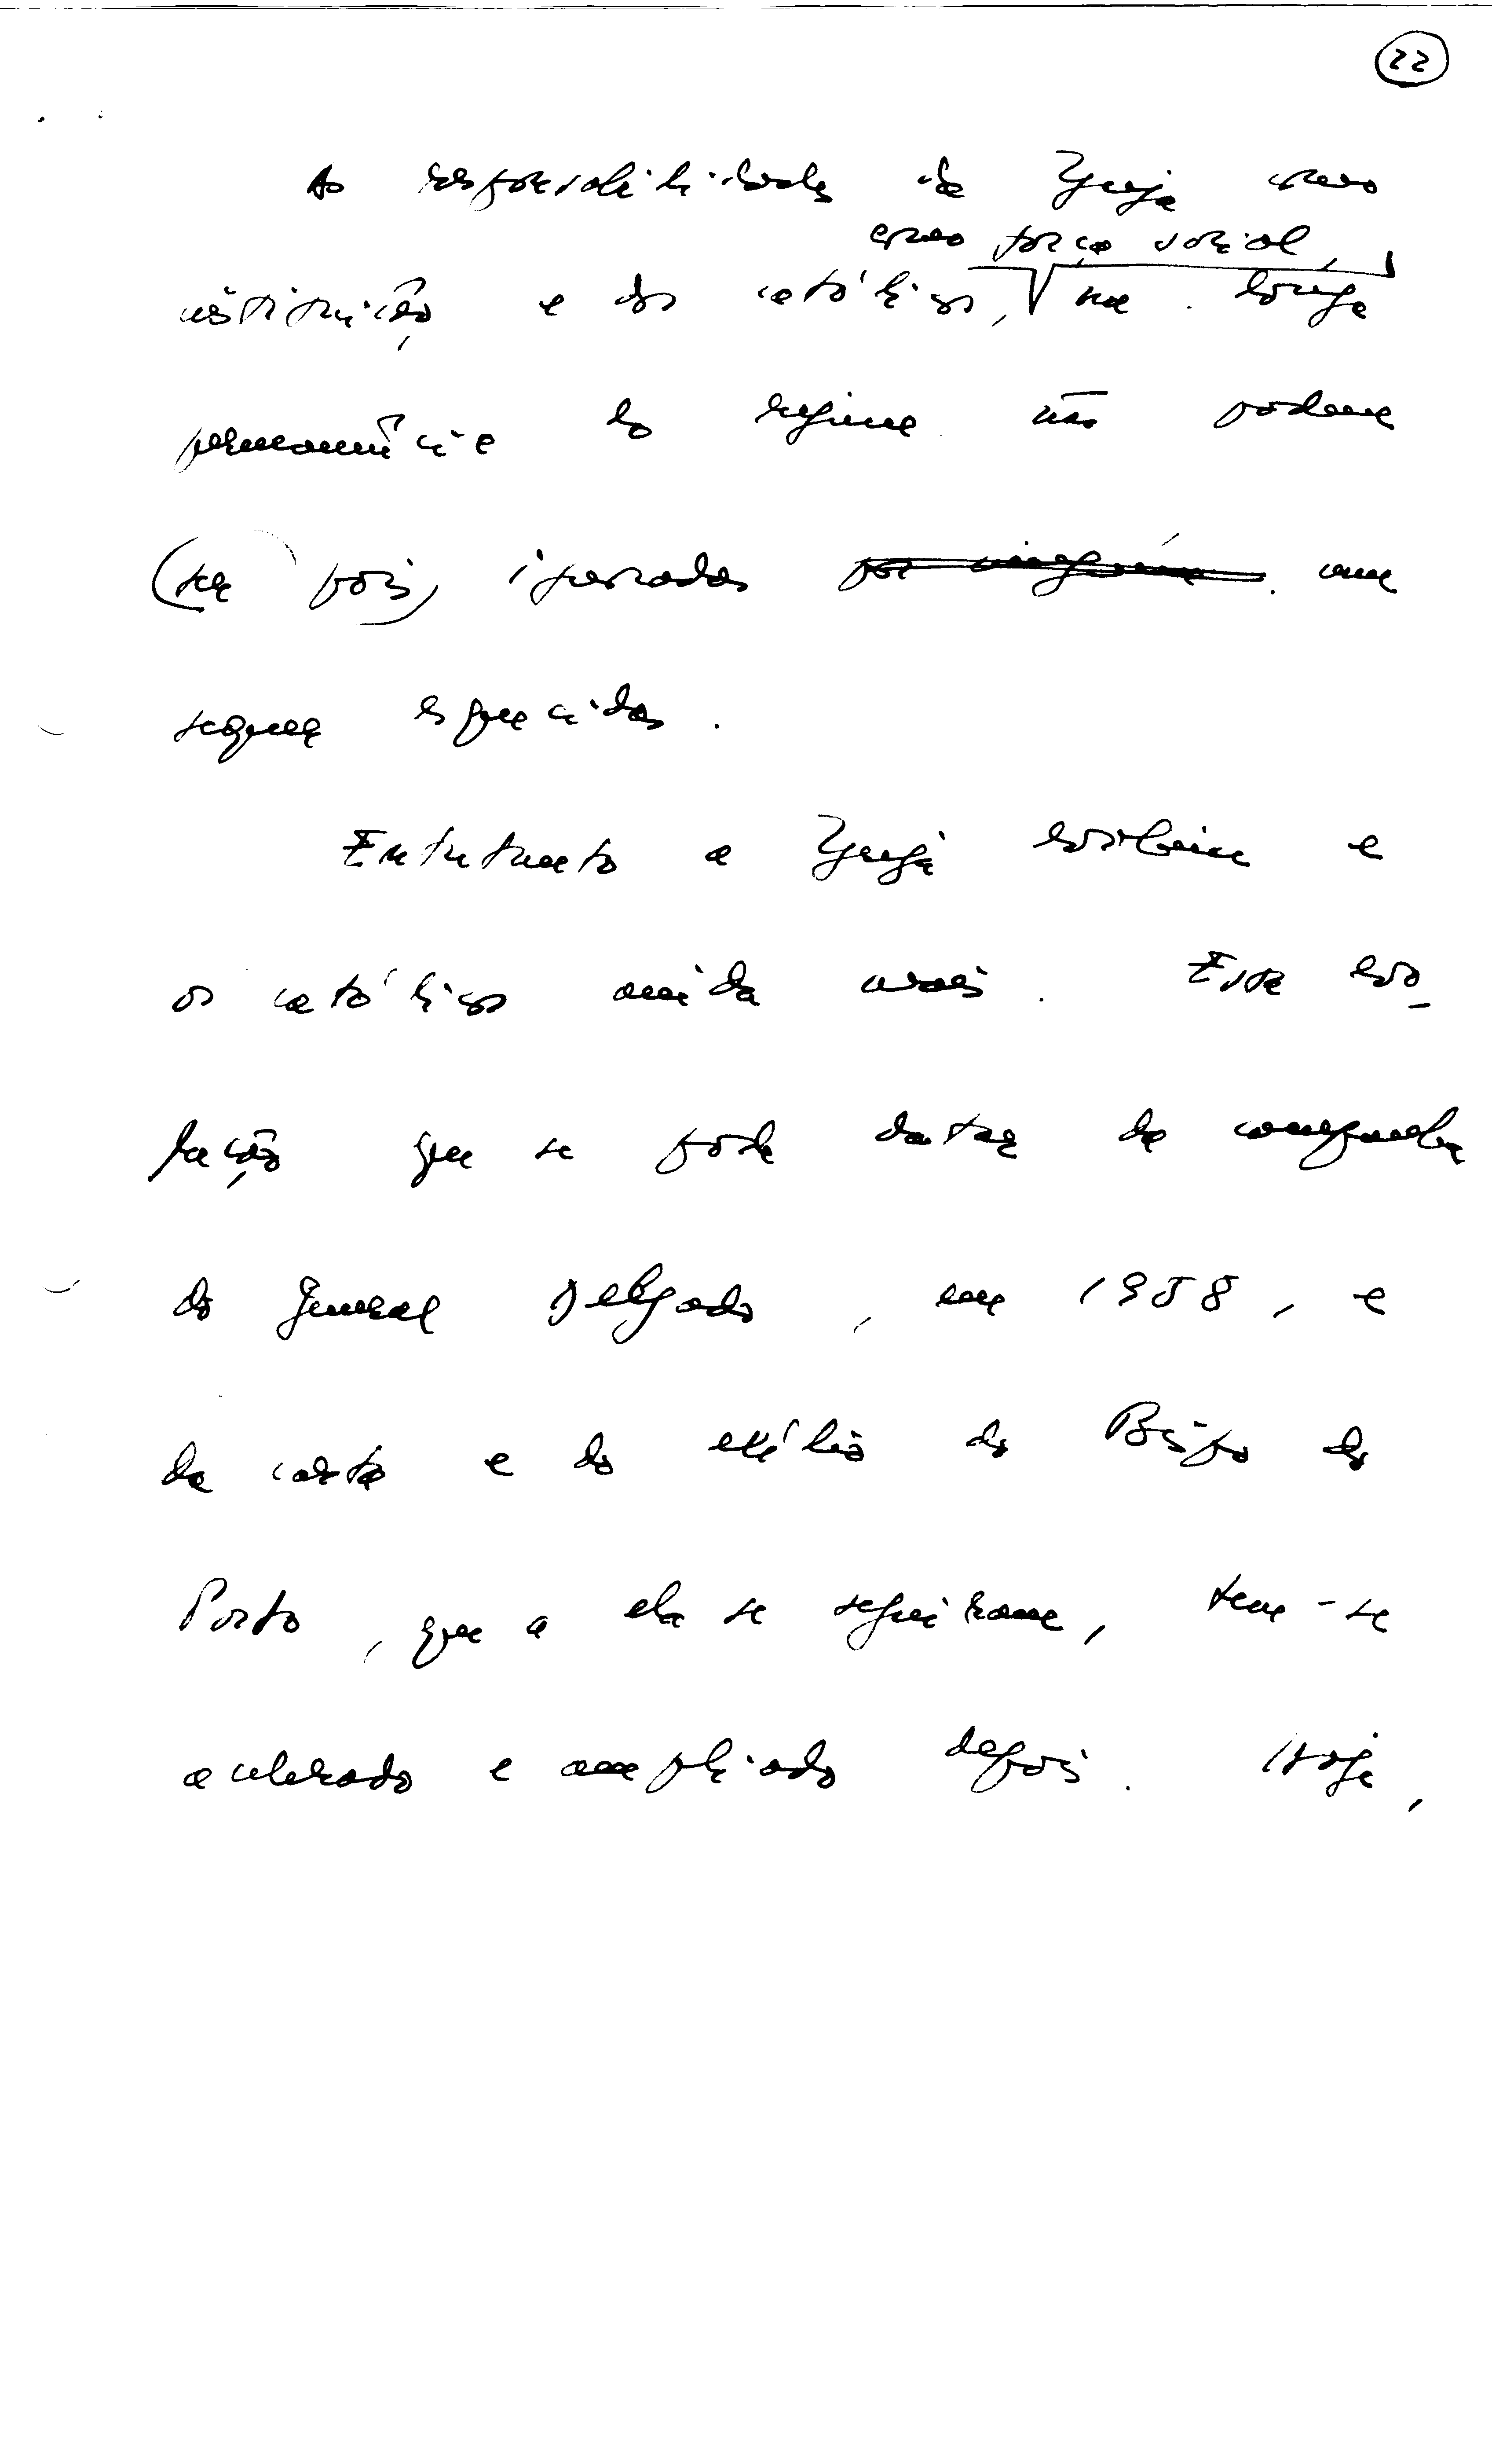 22
As responsabilidades da Igreja como
como força social,
instituição e dos católicos, na longa
permanência do regime não podem
(ser pois) ignoradas por ninguém nem
sequer esquecidas.
Entretanto a Igreja evoluiu e
os católicos ainda mais. Esta evo-
lução que se pode datar da campanha
do General Delgado, em 1958, e
da carta e do exílio do Bispo do
Porto, que a ela se seguiram, tem-se
acelerado e ampliado depois. Hoje,